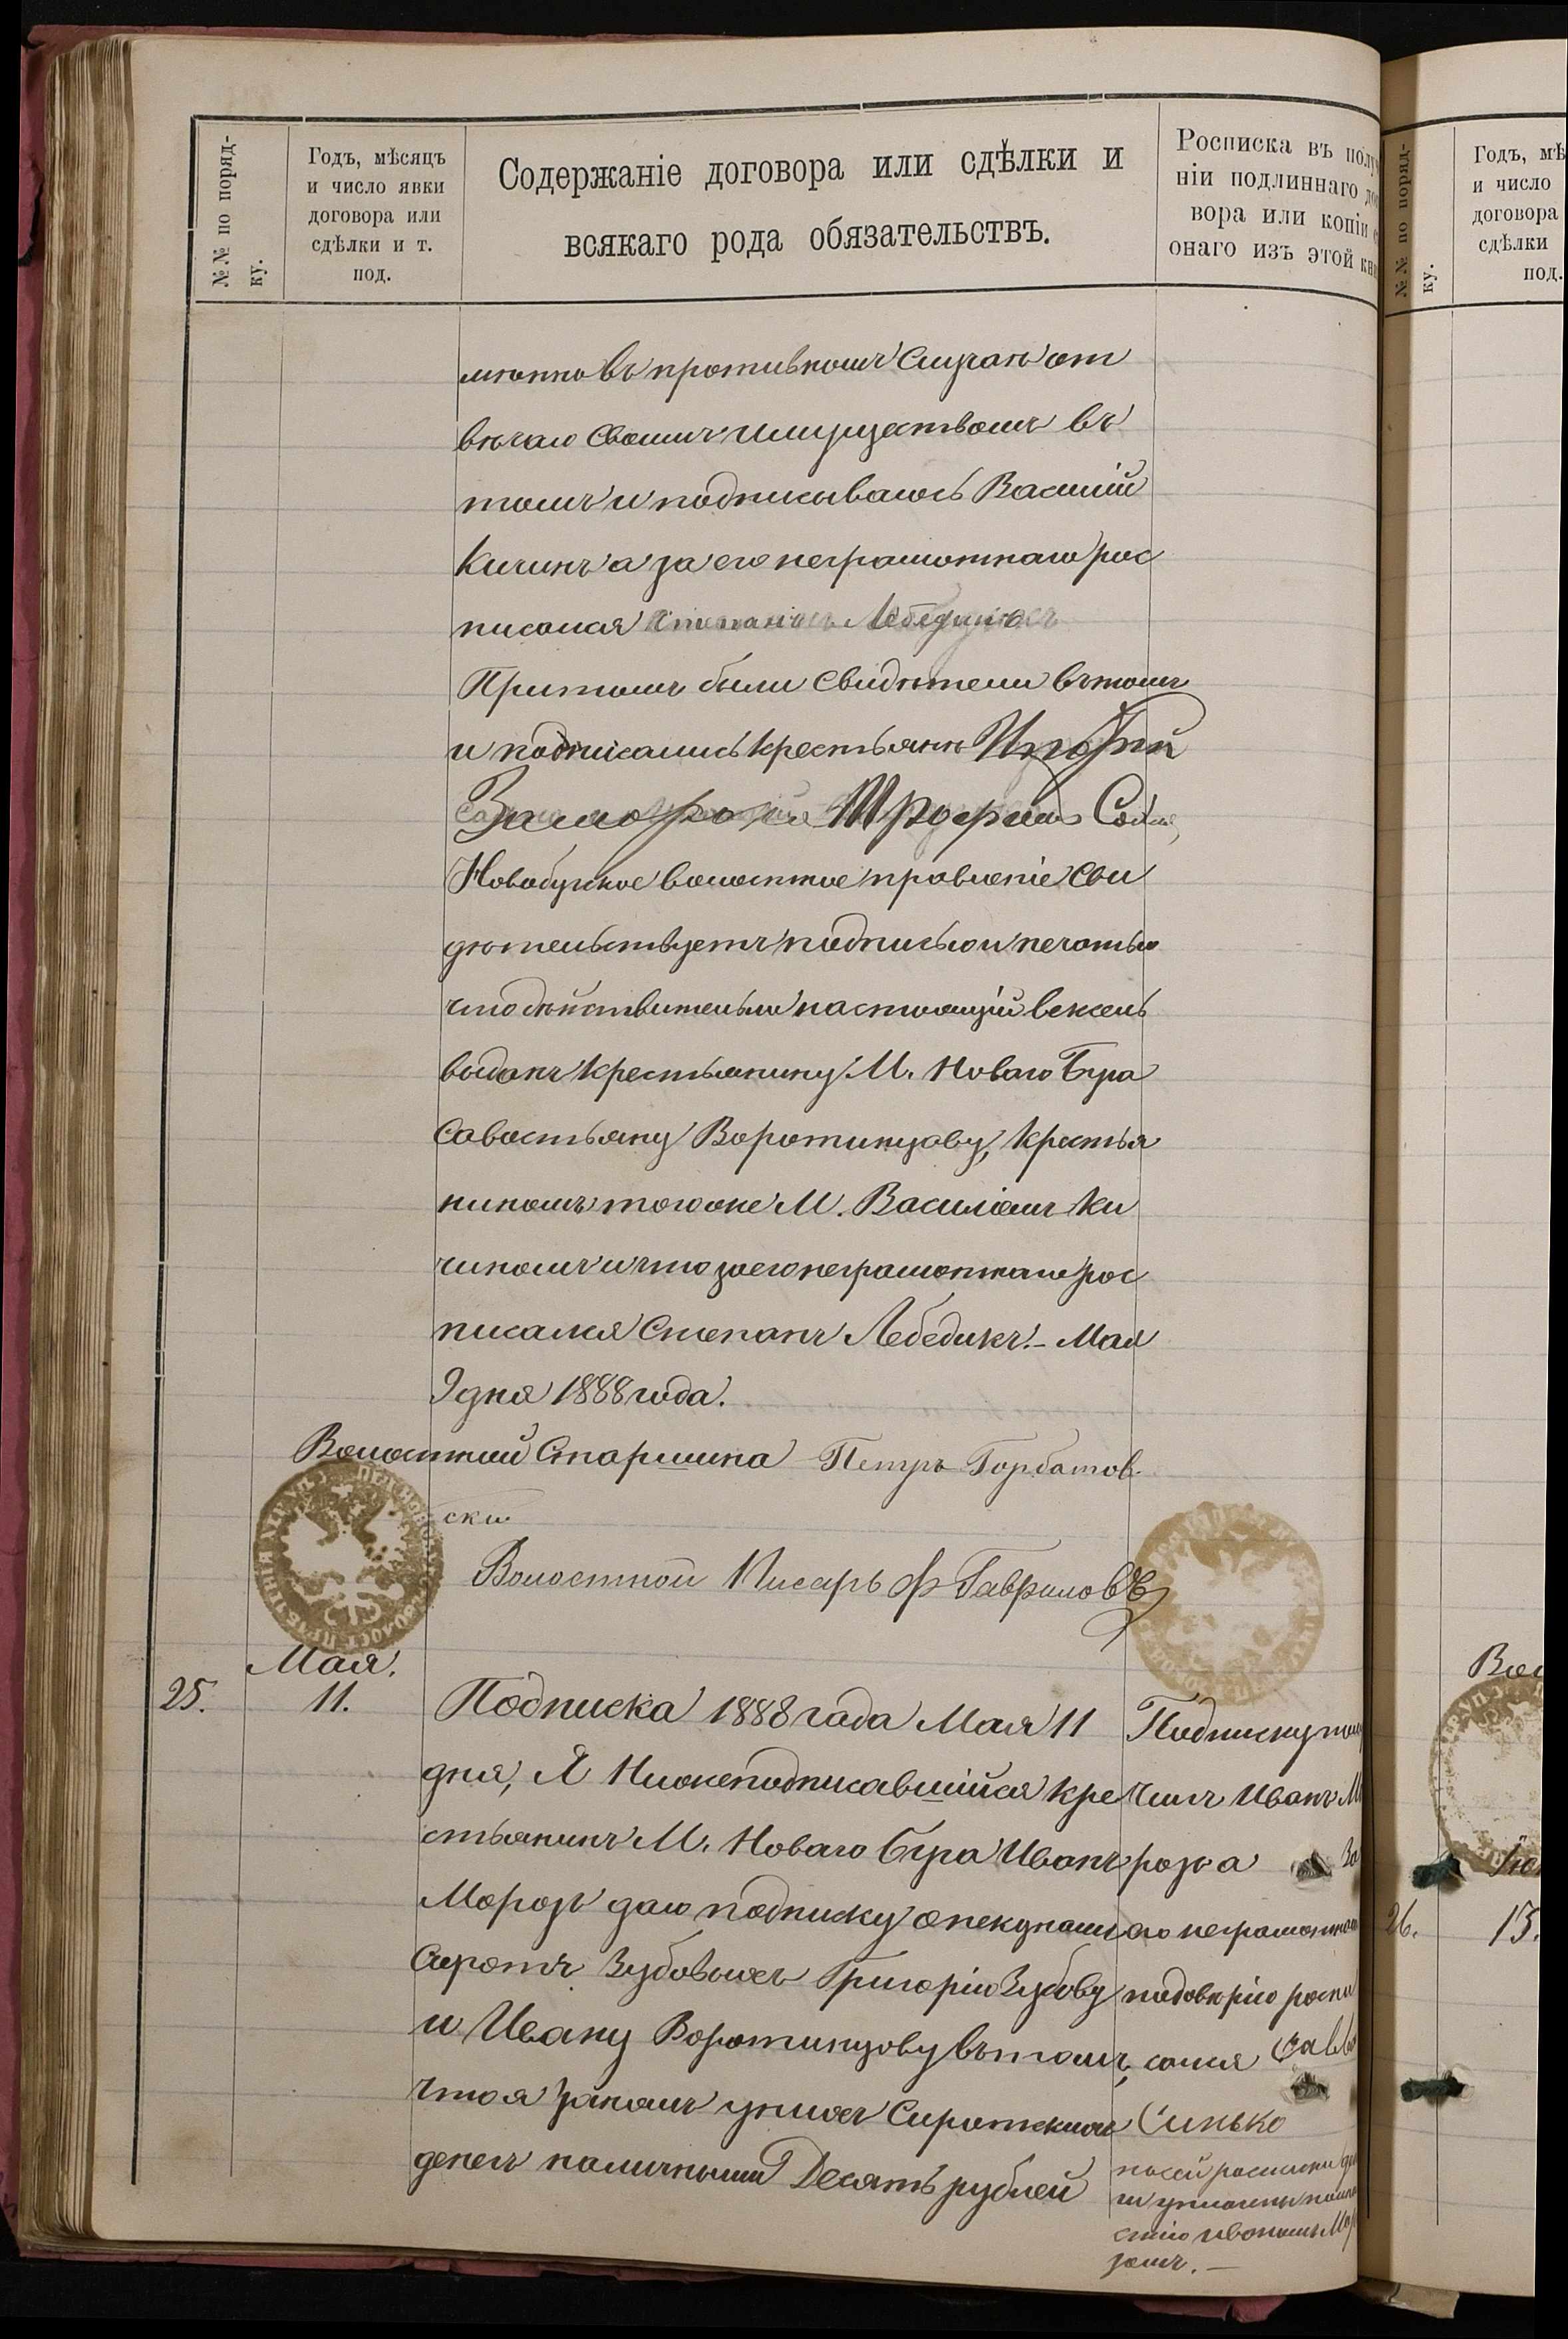 №№ по поряд-
ку.
Годъ, мѣсяцъ
и число явки
договора или
сдѣлки и т.
под.
Содержаніе договора или сдѣлки и
всякаго рода обязательствъ.
Росписка въ полу
ніи подлиннаго до
вора или копіи с
онаго изъ этой кни
мѣнно въ противномъ случаѣ от
вѣчаю своимъ имуществомъ въ
томъ и подписываюсь Василій
Кичинъ а за его неграмотнаго рос
писался Лебедикъ
Притомъ были свидѣтели въ томъ
и подписались крестьяне
Трофимъ
Новобугское волостное правленіе сви
дѣтельствуетъ подписью и печатью
что дѣйствительно настоящій вексель
выданъ крестьянину М. Новаго Буга
Савостьяну Воротинцову, крестья
ниномъ того же М. Василіемъ Ки
чиномъ и что за его неграмотнаго рос
писался Степанъ Лебедикъ. - Мая
9 дня 1888 года.
Волостной Старшина Петръ Горбатов
ски
Волостной Писарь Ф Гавриловъ
Мая.
25.
11.
Подписка 1888 года Мая 11
дня, Я Нижеподписавшійся кре
стьянинъ М. Новаго Буга Иванъ
Морозъ даю подписку опекунамъ
Сиротъ Зубовыхъ Григорію Зубову
и Ивану Воротинцову въ томъ,
что я занялъ у нихъ Сиротскихъ
денегъ наличными Десять рублей
Подписку пол
чилъ Иванъ М
розъ а за
его неграмотнаго
подовѣрію роспи
сался Савва
Синько
по сей роспискѣ де
ги уплачены полно
стію Иваномъ Мо
зомъ. —
№№ по поряд-
ку.
Годъ, мѣ
и число
договора
сдѣлки
под.
Вол
26.
15.